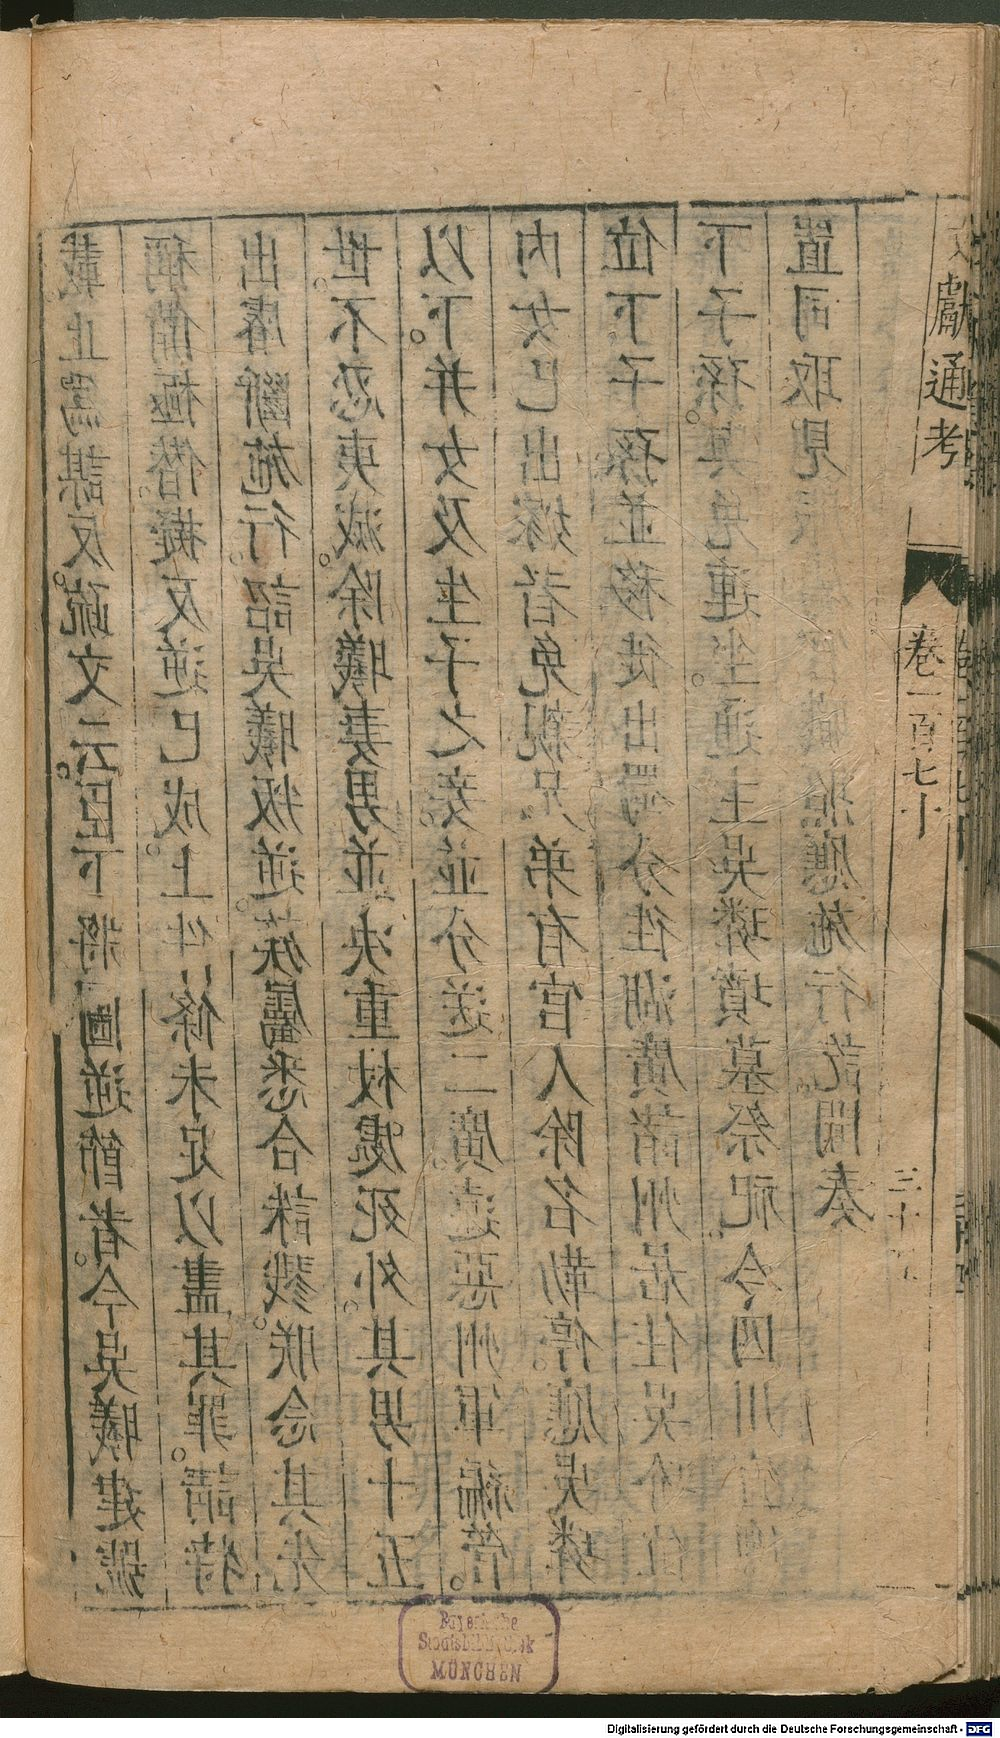 載止為謀反疏文云臣下將圖逆節者今吳曦建號
稱備極僭擬反逆已成上件條未足以盡其罪請特
出睿斷施行詔吳曦叛逆族屬悉合誅戮朕念其先
世不忍夷滅除曦妻男並決重杖處死外其男十五
以下并女及生子之妾並分送二廣遠惡州軍編管
内女已出嫁者免親兄弟有官人除名勒停應吳璘
位下子孫並移徙出蜀分往湖廣諸州居住吳玠位
下子孫與免連坐通主吳璘墳墓祭祀令四川宣
置司取見服官職照應施行訖聞奏
文獻通考
卷一百七十
三十
Bayerische
Staatsbibliothek
MÜNCHEN
Digitalisierung gefördert durch die Deutsche Forschungsgemeinschaft - DFG